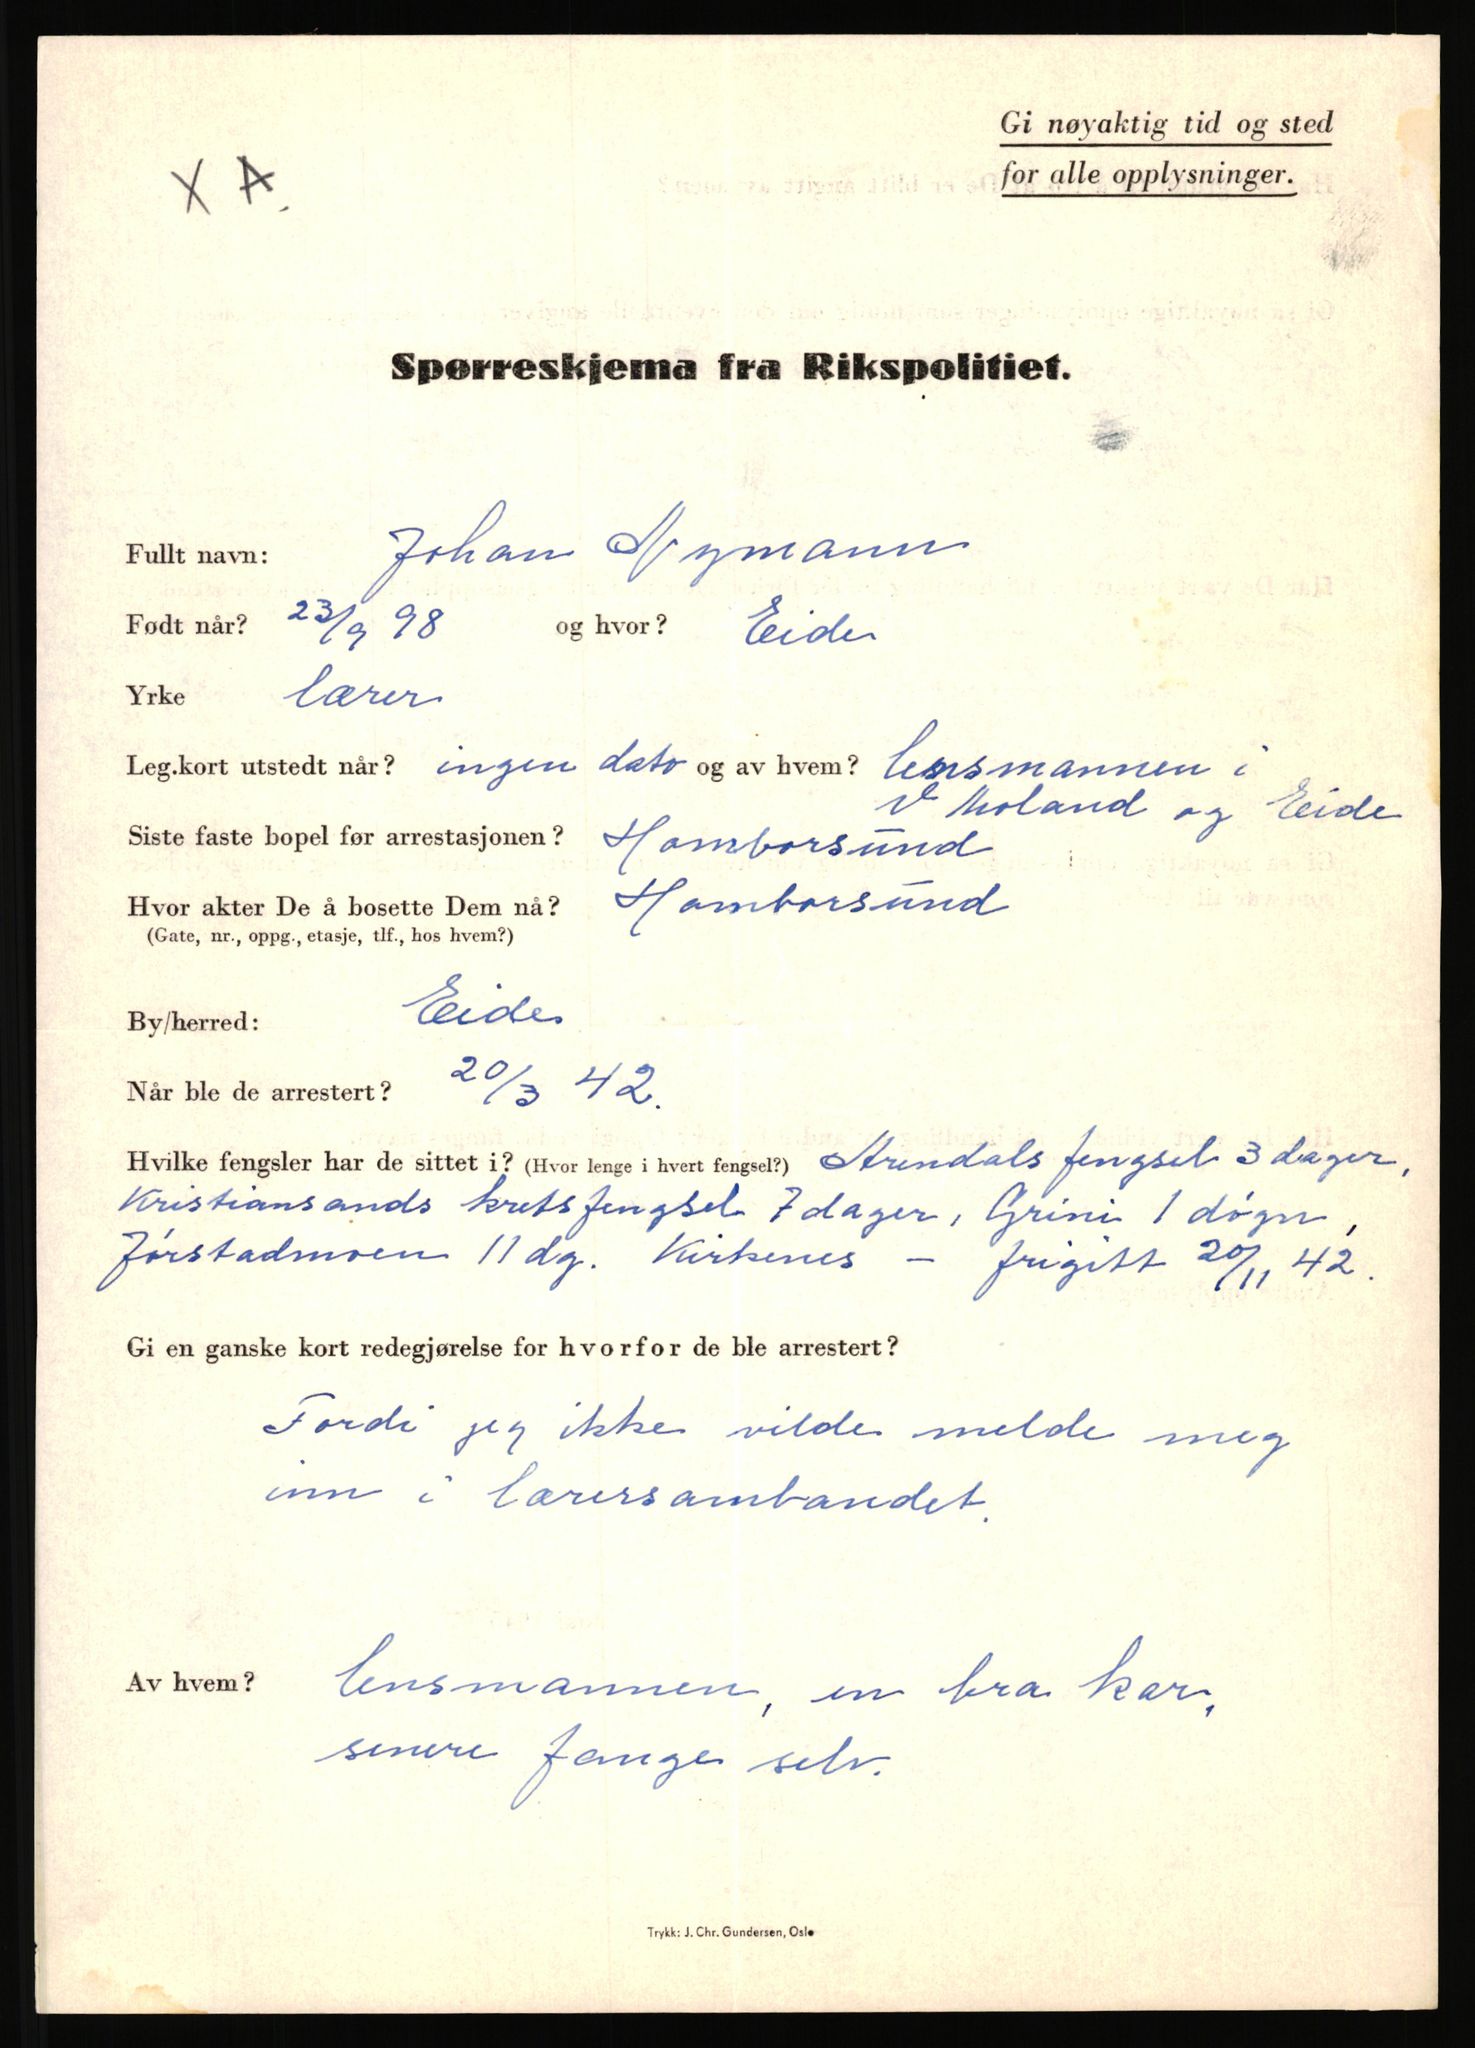 Gi nøyaktig tid og sted
for alle opplysninger.
X A.
Spørreskjema fra Rikspolitiet.
Fullt navn: Johan Nymann
Født når? 23/9 98 og hvor? Eide
Yrke lærer
Leg.kort utstedt når? ingen dato og av hvem? lensmannen i
V Moland og Eide
Siste faste bopel før arrestasjonen? Homborsund
Hvor akter De å bosette Dem nå? Homborsund
(Gate, nr., oppg., etasje, tlf., hos hvem?)
By/herred: Eide
Når ble de arrestert? 20/3 42.
Hvilke fengsler har de sittet i? (Hvor lenge i hvert fengsel?) Arendals fengsel 3 dager,
Kristiansands kretsfengsel 7 dager, Grini 1 døgn,
Jørstadmoen 11 dg. Kirkenes – frigitt 20/11 42.
Gi en ganske kort redegjørelse for hvorfor de ble arrestert?
Fordi jeg ikke vilde melde meg
inn i lærersambandet.
Av hvem? lensmannen, en bra kar,
senere fange selv.
Trykk: J. Chr. Gundersen, Oslo